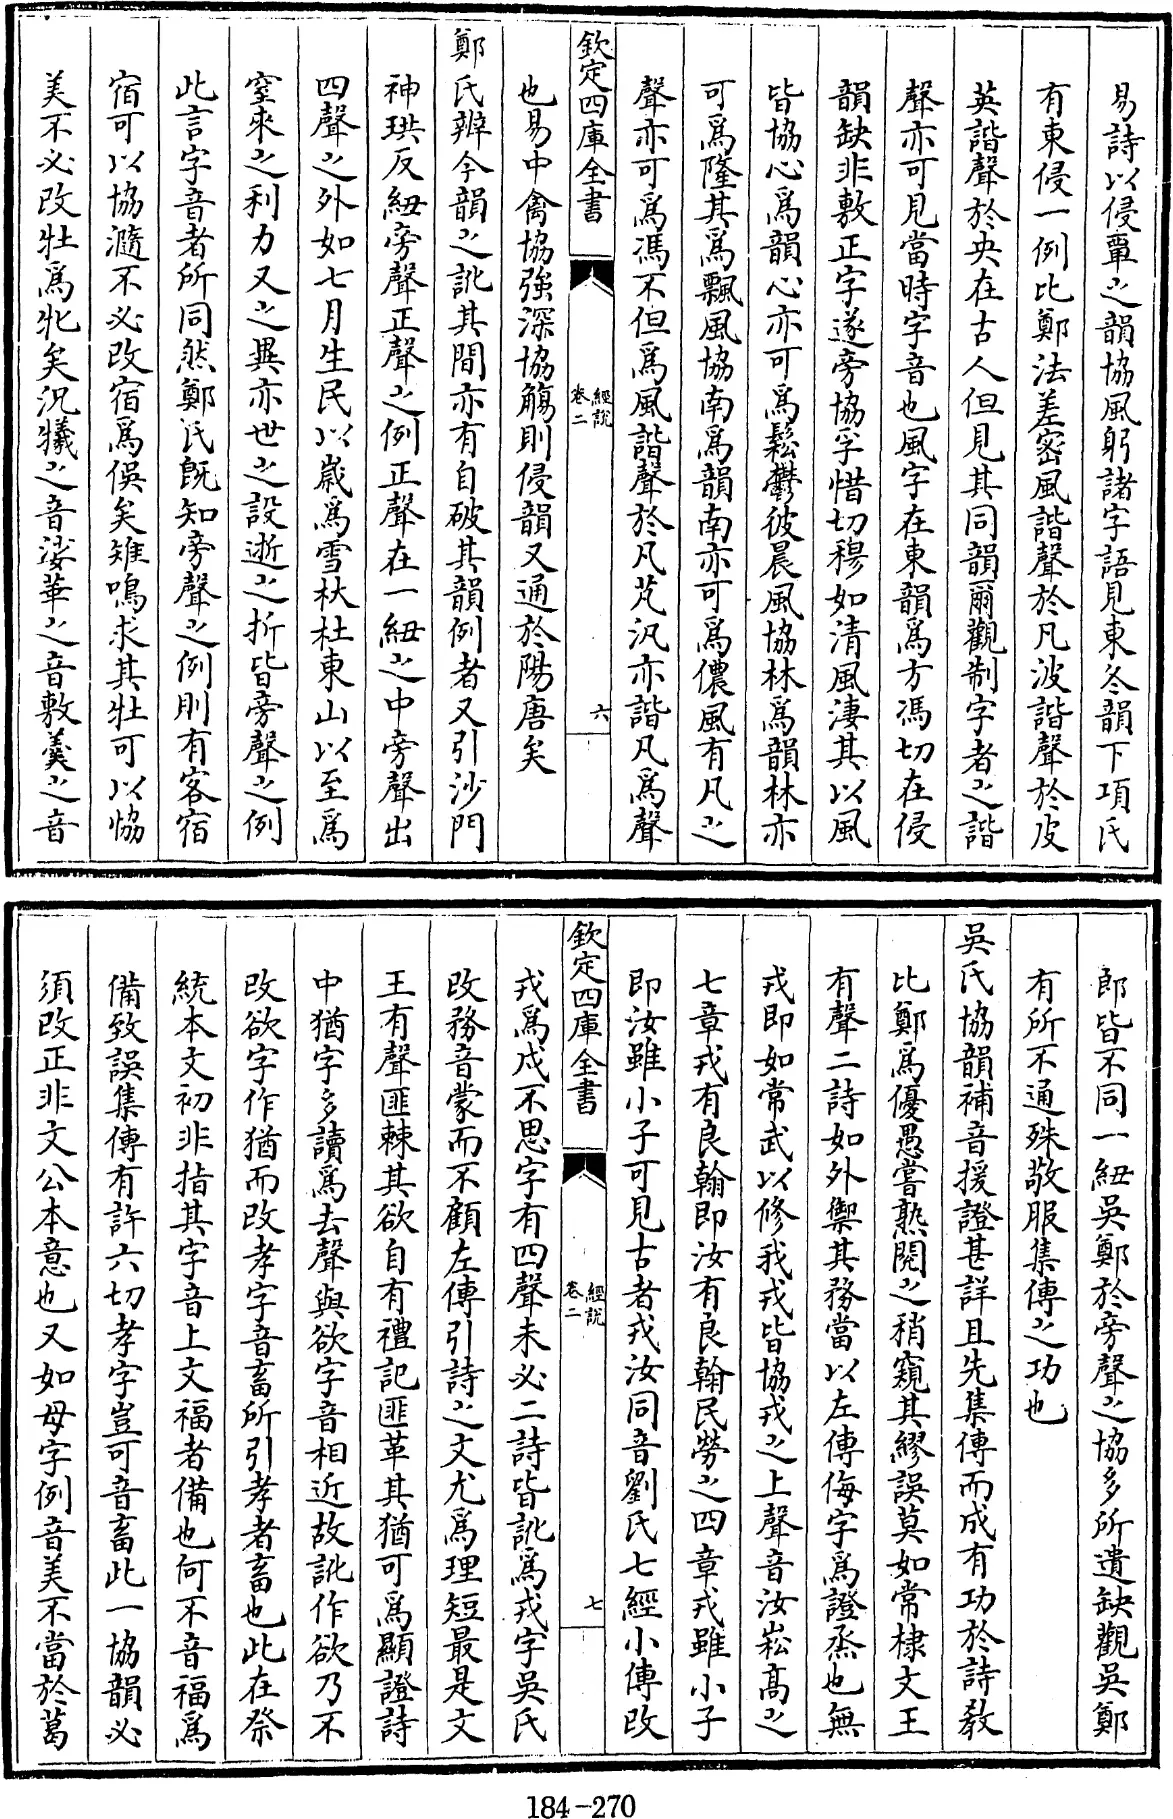 易詩以侵覃之韻協風躬諸字語見東冬韻下項氏
有東侵一例比鄭法差密風諧聲於凡波諧聲於皮
英諧聲於央在古人但見其同韻爾觀制字者之諧
聲亦可見當時字音也風字在東韻爲方馮切在侵
韻缺非敷正字遂旁協孚惜切穆如清風淒其以風
皆協心爲韻心亦可爲鬆鬱彼晨風協林爲韻林亦
可爲隆其爲飄風協南爲韻南亦可爲儂風有凡之
聲亦可爲馮不但爲風諧聲於凡芃汎亦諧凡爲聲
欽定四庫全書
經說
卷二
六
也易中禽協強深協觴則侵韻又通於陽唐矣
鄭氏辨今韻之訛其間亦有自破其韻例者又引沙門
神珙反紐旁聲正聲之例正聲在一紐之中旁聲出
四聲之外如七月生民以歲爲雪杕杜東山以至爲
窒來之利力又之異亦世之設逝之折皆旁聲之例
此言字音者所同然鄭氏既知旁聲之例則有客宿
宿可以協濨不必改宿爲俁矣雉鳴求其牡可以協
美不必改牡爲牝矣況犧之音娑華之音敷羹之音
郎皆不同一紐吳鄭於旁聲之協多所遺缺觀吳鄭
有所不通殊敬服集傳之功也
吳氏協韻補音援證甚詳且先集傳而成有功於詩教
比鄭爲優愚嘗熟閱之稍窺其繆誤莫如常棣文王
有聲二詩如外禦其務當以左傳侮字爲證烝也無
戎即如常武以修我戎皆協戎之上聲音汝崧高之
七章戎有良翰即汝有良翰民勞之四章戎雖小子
即汝雖小子可見古者戎汝同音劉氏七經小傳改
欽定四庫全書
經說
卷二
七
戎爲戍不思字有四聲未必二詩皆訛爲戎字吳氏
改務音蒙而不顧左傳引詩之文尤爲理短最是文
王有聲匪棘其欲自有禮記匪革其猶可爲顯證詩
中猶字多讀爲去聲與欲字音相近故訛作欲乃不
改欲字作猶而改孝字音畜所引孝者畜也此在祭
統本文初非指其字音上文福者備也何不音福爲
備致誤集傳有許六切孝字豈可音畜此一協韻必
須改正非文公本意也又如母字例音美不當於葛
184-270